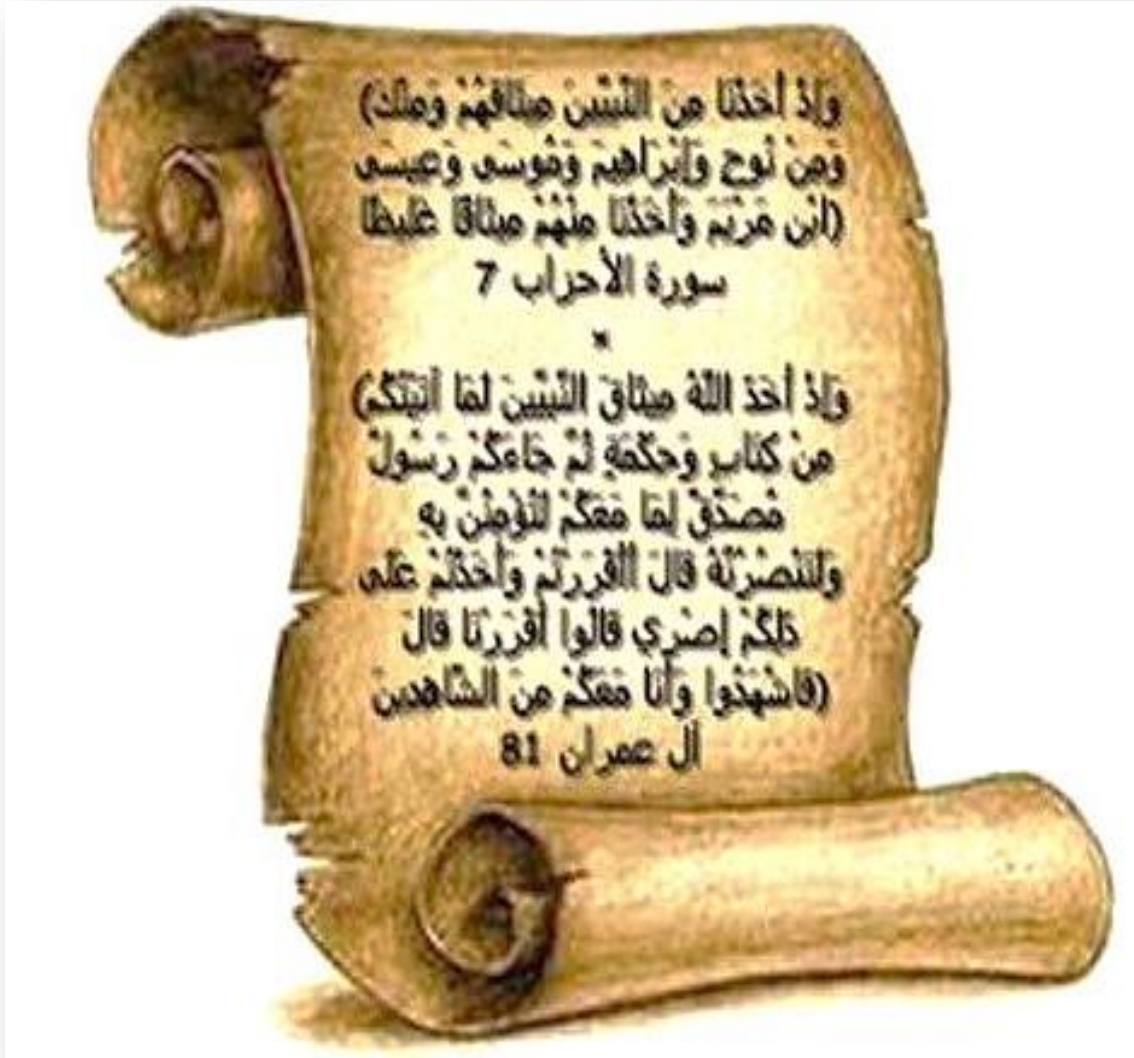 وَإِذْ أَخَذْنَا مِنَ النَّبِيِّينَ مِيثَاقَهُمْ وَمِنْكَ)
وَمِنْ نُوحٍ وَإِبْرَاهِيمَ وَمُوسَى وَعِيسَى
(ابْنِ مَرْيَمَ وَأَخَذْنَا مِنْهُمْ مِيثَاقًا غَلِيظًا
سورة الأحزاب 7
*
وَإِذْ أَخَذَ اللَّهُ مِيثَاقَ النَّبِيِّينَ لَمَا آتَيْتُكُمْ)
مِنْ كِتَابٍ وَحِكْمَةٍ ثُمَّ جَاءَكُمْ رَسُولٌ
مُصَدِّقٌ لِمَا مَعَكُمْ لَتُؤْمِنُنَّ بِهِ
وَلَتَنْصُرُنَّهُ قَالَ أَأَقْرَرْتُمْ وَأَخَذْتُمْ عَلَى
ذَلِكُمْ إِصْرِي قَالُوا أَقْرَرْنَا قَالَ
(فَاشْهَدُوا وَأَنَا مَعَكُمْ مِنَ الشَّاهِدِينَ
آل عمران 81